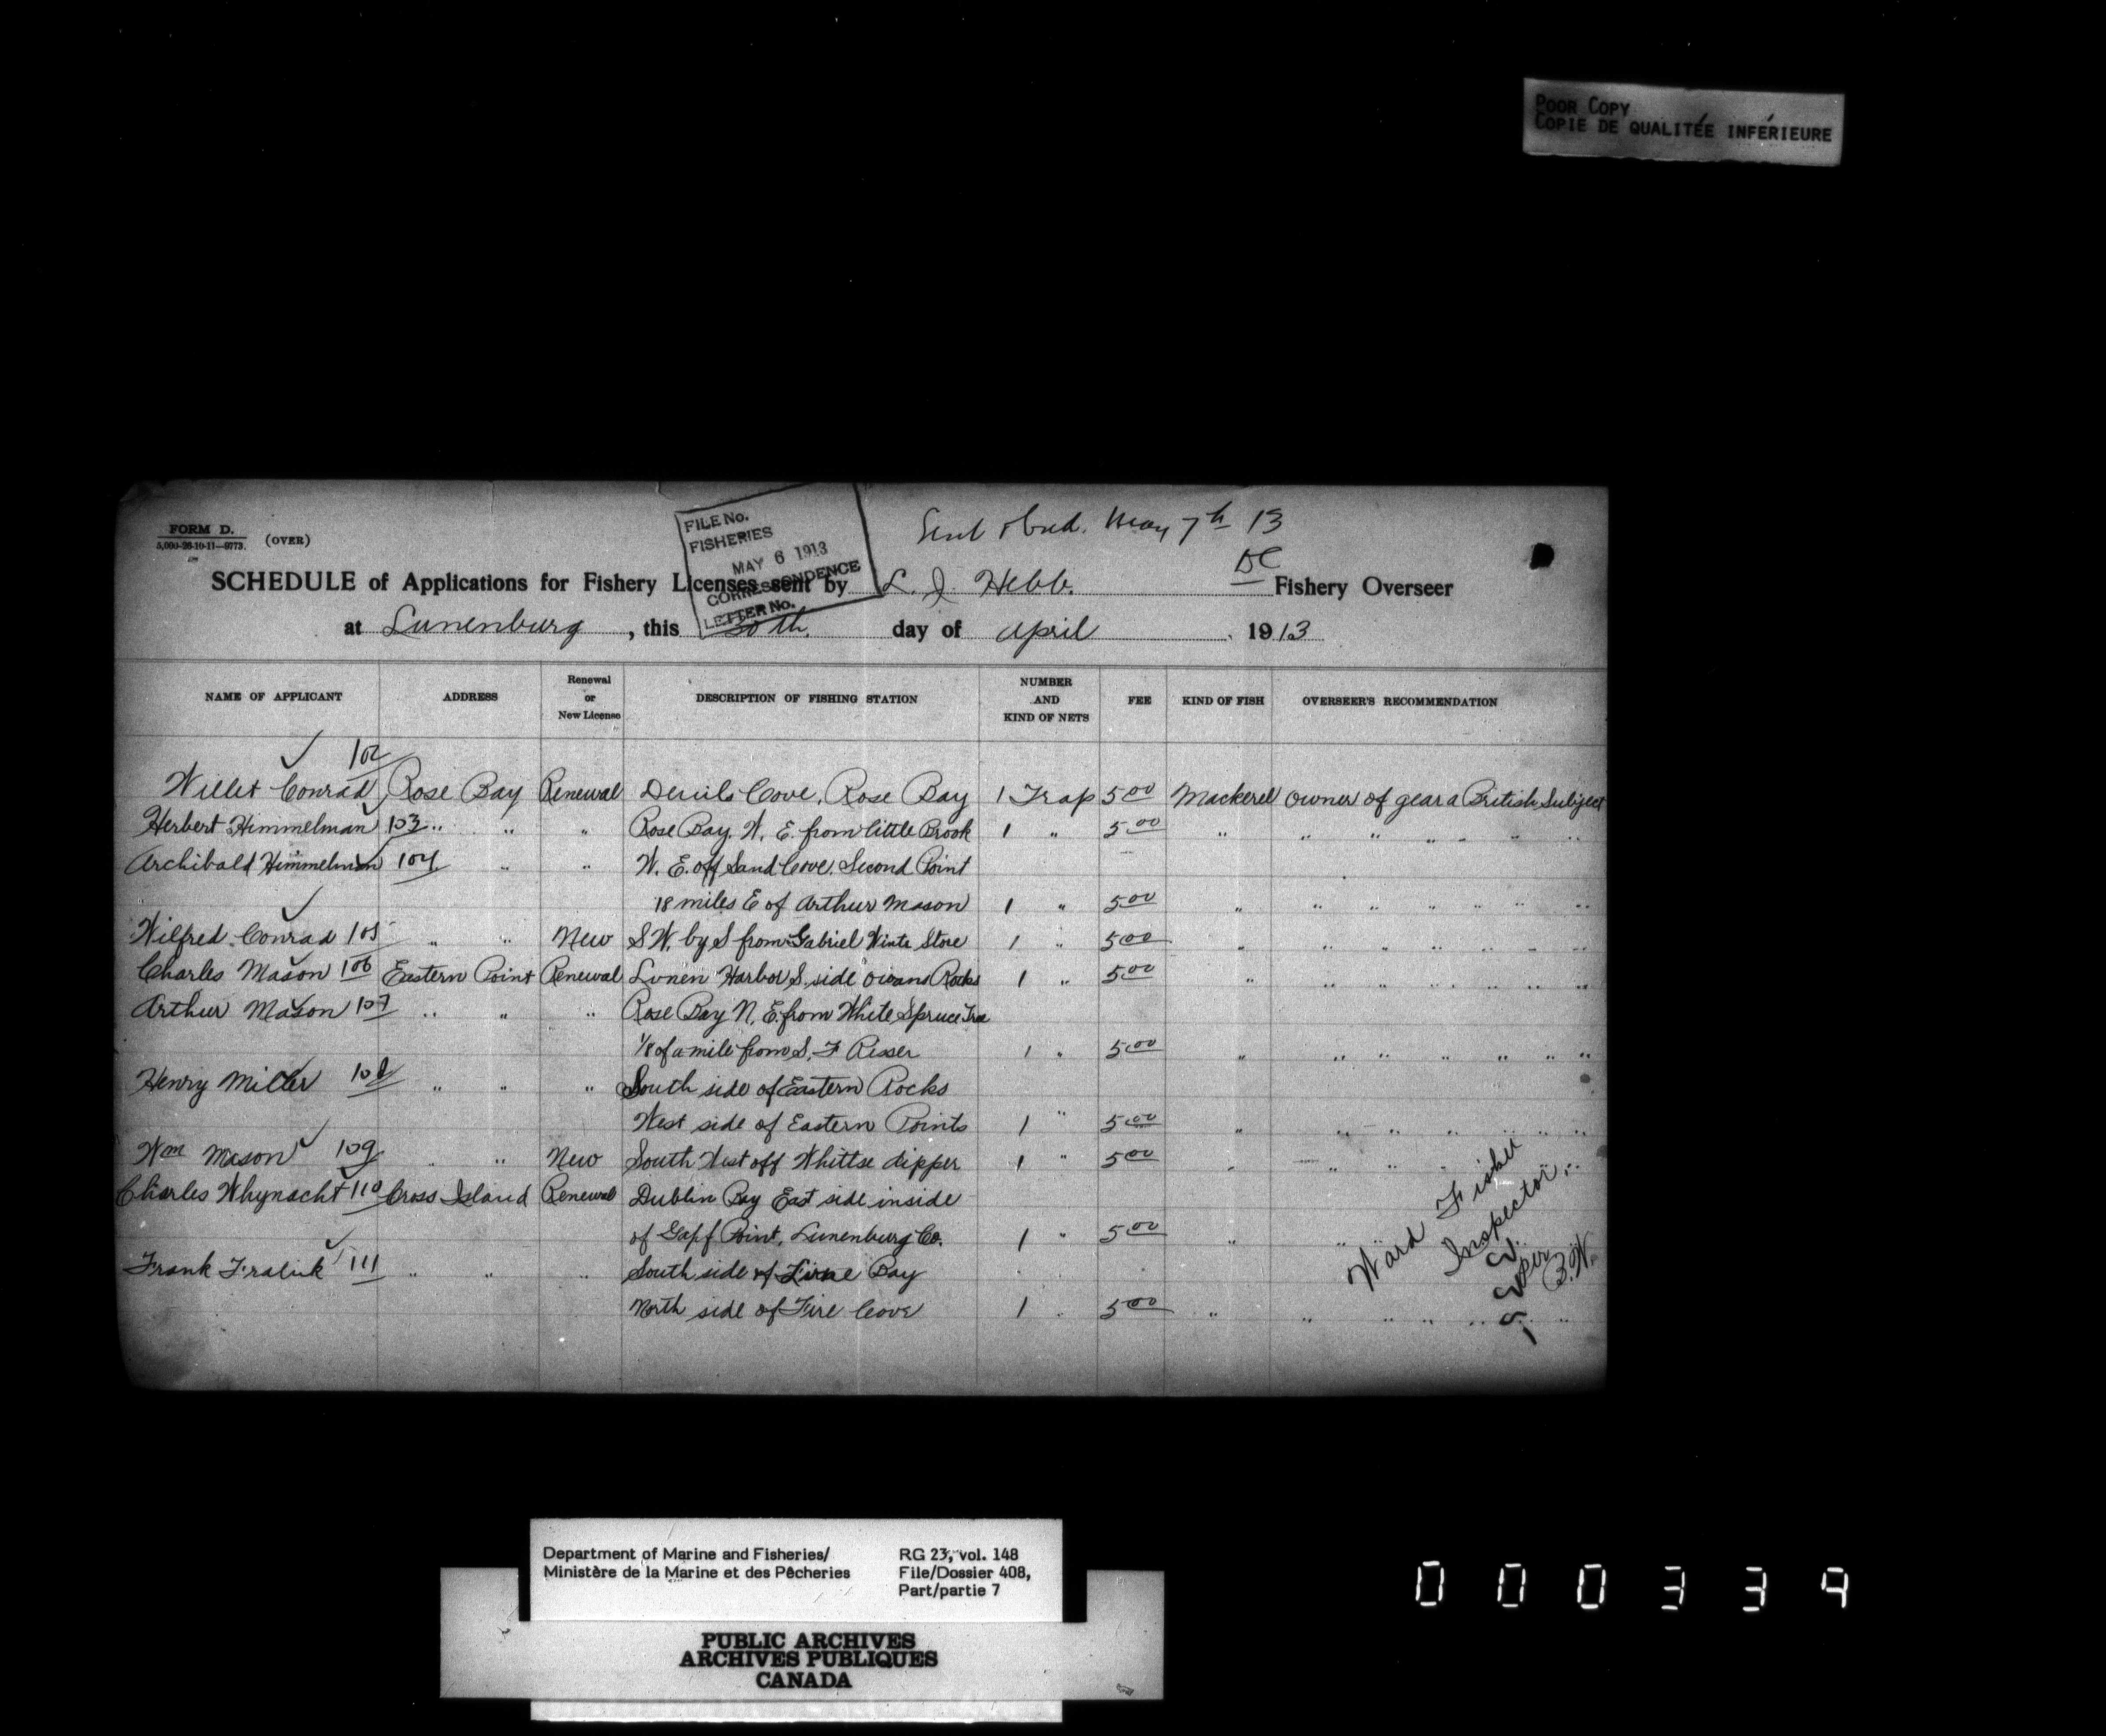 POOR COPY
COPIE DE QUALITÉE INFÉRIEURE
FORM D.
5,000-26-10-11—9773.
(OVER)
FILE No.
FISHERIES
MAY 6 1913
CORRESPONDENCE
LETTER No.
May 7th 13
DC
SCHEDULE of Applications for Fishery Licenses sent by L. J. Hebb. Fishery Overseer
at Lunenburg, this 30th. day of April 1913
NAME OF APPLICANT ADDRESS Renewal or New License DESCRIPTION OF FISHING STATION NUMBER AND KIND OF NETS FEE KIND OF FISH OVERSEER'S RECOMMENDATION
✓ 102
Willet Conrad Rose Bay Renewal Devils Cove, Rose Bay 1 Trap 5 00 Mackerel owner of gear a British Subject
Herbert Himmelman 103 " " " Rose Bay. W. E. from little Brook 1 " 5 00 " " " " " " "
Archibald Himmelman 104 " " W. E. off Sand Cove. Second Point
18 miles E of Arthur Mason 1 " 5 00 " " " " " " "
Wilfred Conrad 105 " " New S W. by S from Gabriel Store 1 " 5 00 " " " " " " "
Charles Mason 106 Eastern Point Renewal Lunen Harbor S. side Ovans Rocks 1 " 5 00 " " " " " " "
Arthur Mason 107 " " " Rose Bay N. E. from White Spruce Tree
1/8 of a mile from S. F Risser 1 " 5 00 " " " " " " "
Henry Miller 108 " " " South side of Eastern Rocks
West side of Eastern Points 1 " 5 00 " " " " " " "
Wm Mason 109 " " New South West off dipper 1 " 5 00 " " " " " "
Charles Whynacht 110 Cross Island Renewal Dublin Bay East side inside
of Gaff Point, Lunenburg Co. 1 " 5 00 " "
Frank 111 " " " South side of Bay
North side of Fire Cove 1 " 5 00 " " " " " " "
Ward Fisher
Inspector.
per B.W.
Department of Marine and Fisheries/
Ministère de la Marine et des Pêcheries
RG 23, vol. 148
File/Dossier 408,
Part/partie 7
PUBLIC ARCHIVES
ARCHIVES PUBLIQUES
CANADA
000339